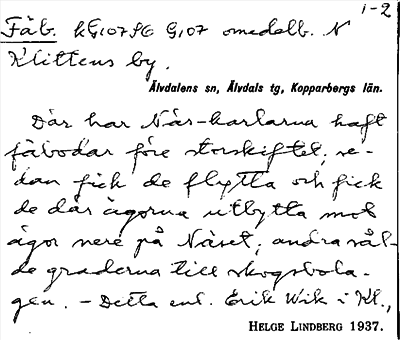 1-2
Fäb. kG107SE G107 omedelb. N
Klittens by.
Älvdalens sn, Älvdals tg, Kopparbergs län.
Där har Näs-karlarna haft
fäbodar före storskiftet; se-
dan fick de flytta och fick
de där ägorna utbytta mot
ägor nere på Näset; andra sål-
de graderna till skogsbola-
gen. – Detta enl. Erik Wik i Kl.,
HELGE LINDBERG 1937.